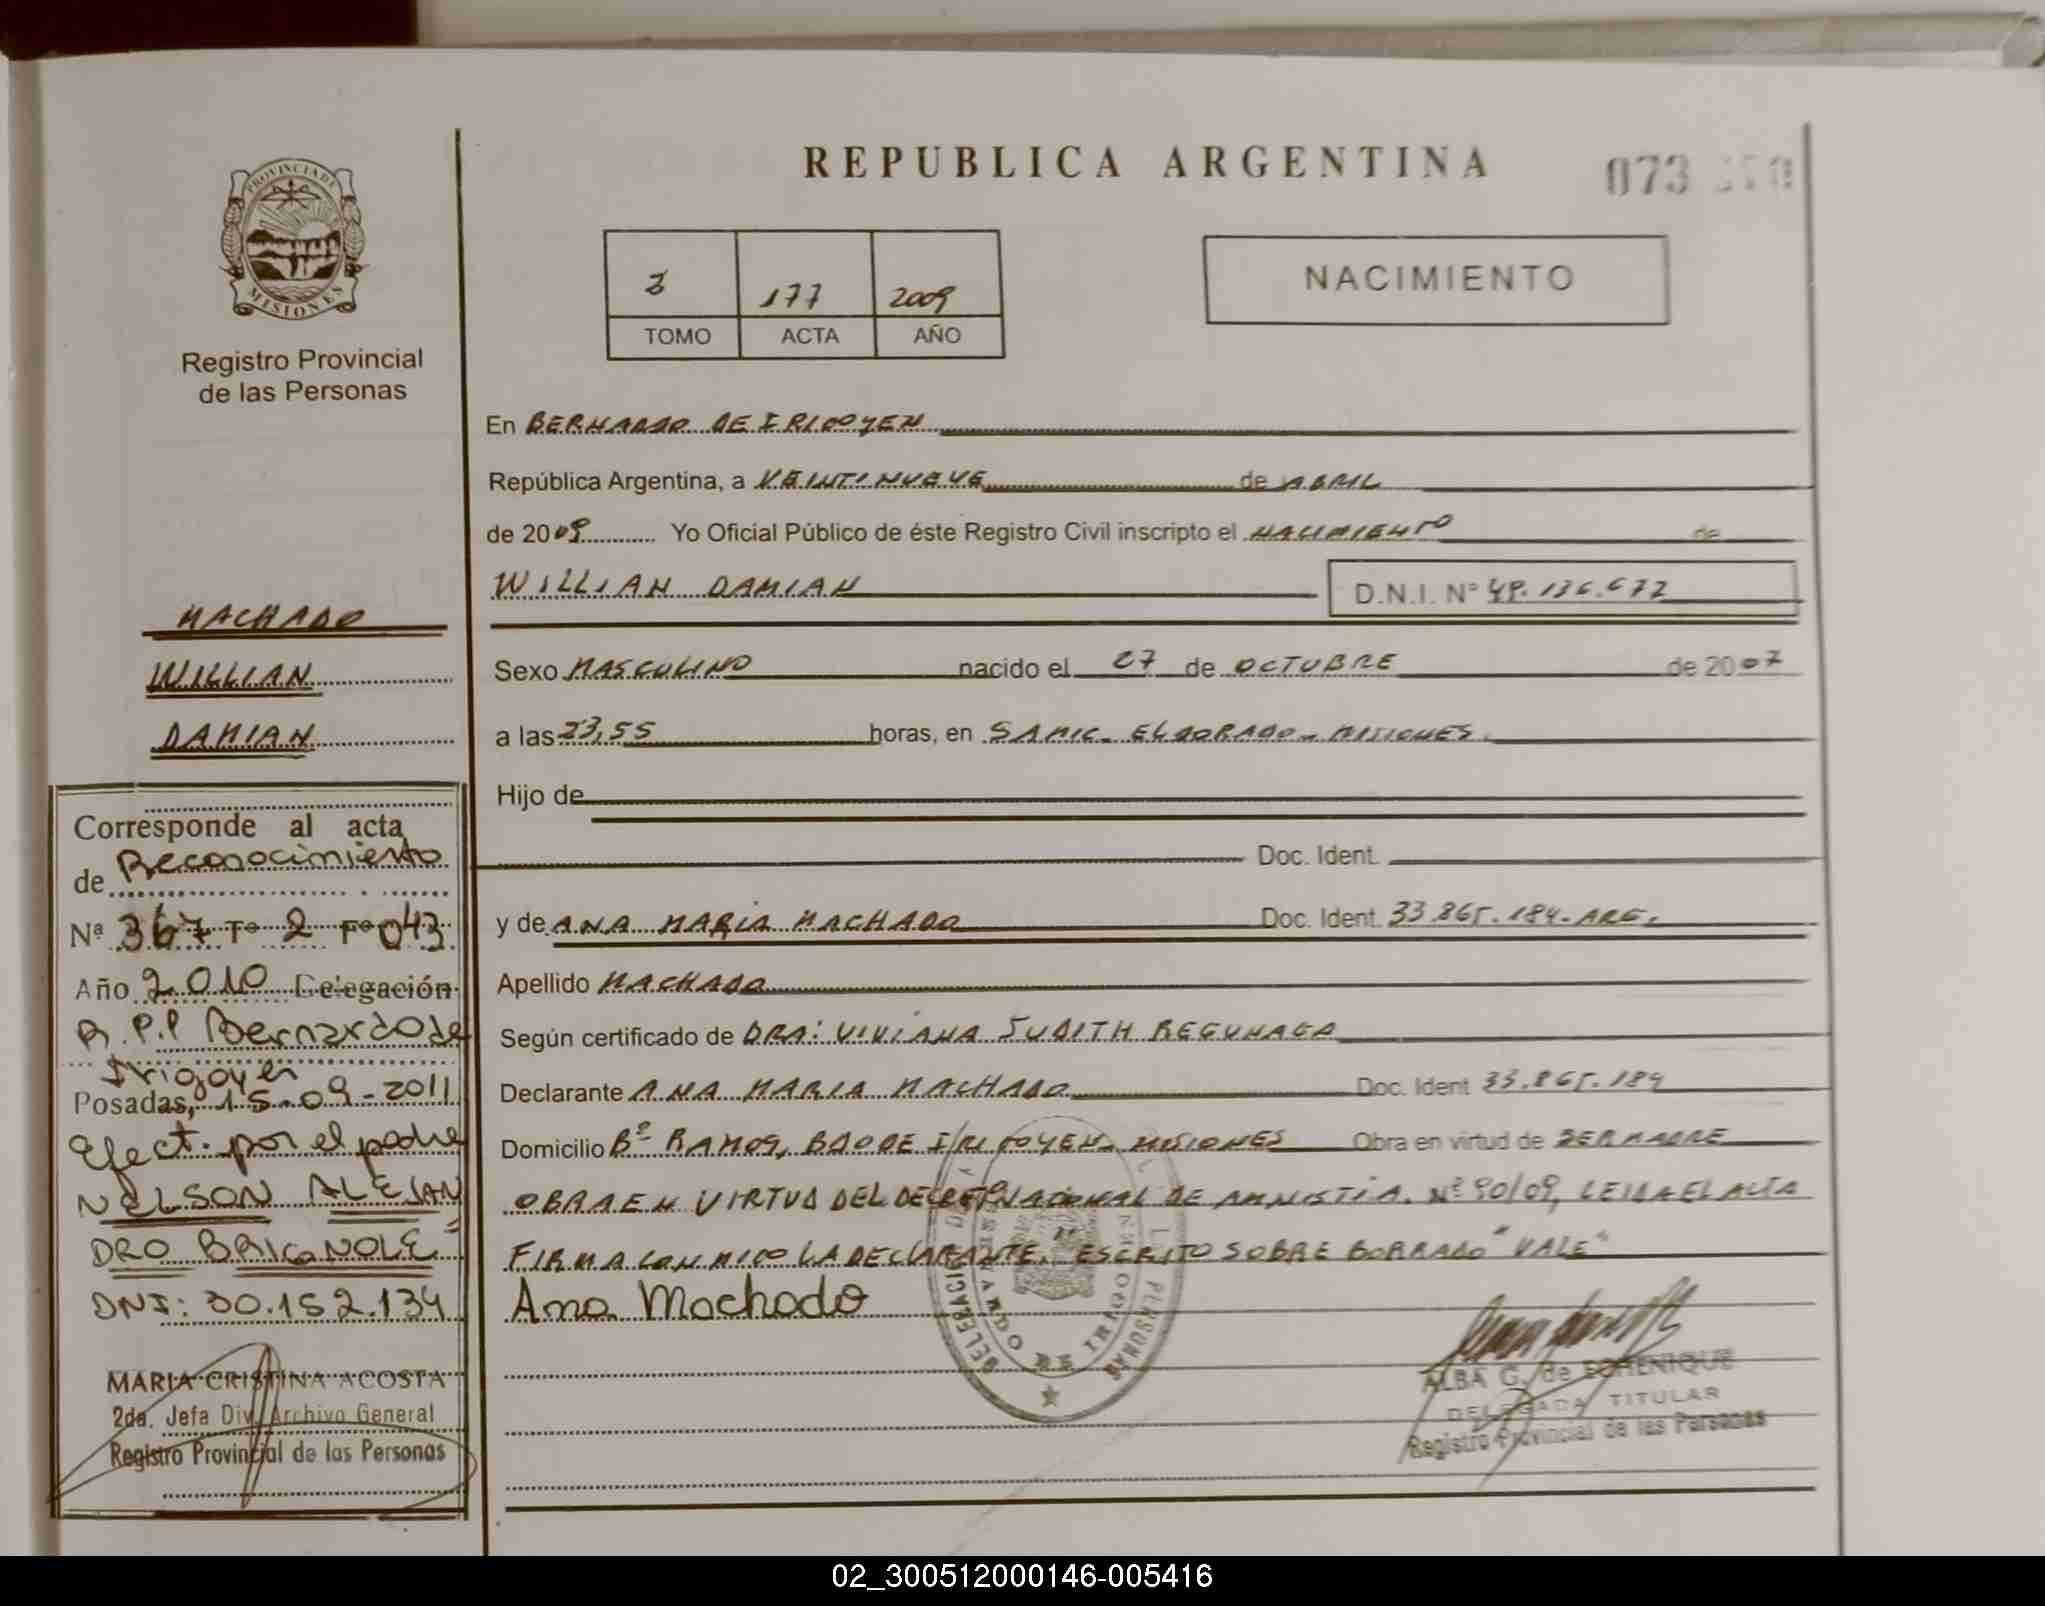 REPUBLICA ARGENTINA
073
PROVINCIA DE
MISIONES
Registro Provincial
de las Personas
177 2009
TOMO ACTA AÑO
NACIMIENTO
En BERNARDO DE IRIGOYEN
República Argentina, a VEINTINUEVE de ABRIL
de 2009 Yo Oficial Público de éste Registro Civil inscripto el NACIMIENTO de
WILLIAN DAMIAN D.N.I. Nº 49.136.672
Sexo MASCULINO nacido el 27 de OCTUBRE de 2007
a las 23,55 horas, en SAMIC - ELDORADO - MISIONES.
Hijo de
Doc. Ident.
y de ANA MARIA MACHADO Doc. Ident. 33.865.184-ARG.
Apellido MACHADO
Según certificado de DRA: VIVIANA JUDITH REGUNAGA
Declarante ANA MARIA MACHADO Doc. Ident 33.865.184
Domicilio Bº RAMOS, BDO DE IRIGOYEN - MISIONES Obra en virtud de SER MADRE
OBRA EN VIRTUD DEL DECRETO NACIONAL DE AMNISTIA. Nº 90/09, LEIDA EL ACTA
FIRMA CONMIGO LA DECLARANTE. ESCRITO SOBRE BORRADO "VALE"
Ana Machado
ALBA G. de ECHENIQUE
DELEGADA TITULAR
Registro Provincial de las Personas
MACHADO
WILLIAN
DAMIAN
Corresponde al acta
de Reconocimiento
Nª 367 Tº 2 Fº 043
Año 2.010 Delegación
R.P.P Bernardo de
Irigoyen
Posadas, 15-09-2011
Efect. por el padre
NELSON ALEJAN
DRO BRIGNOLE
DNI: 30.152.134
MARIA CRISTINA ACOSTA
2da. Jefa Div. Archivo General
Registro Provincial de las Personas
02_300512000146-005416